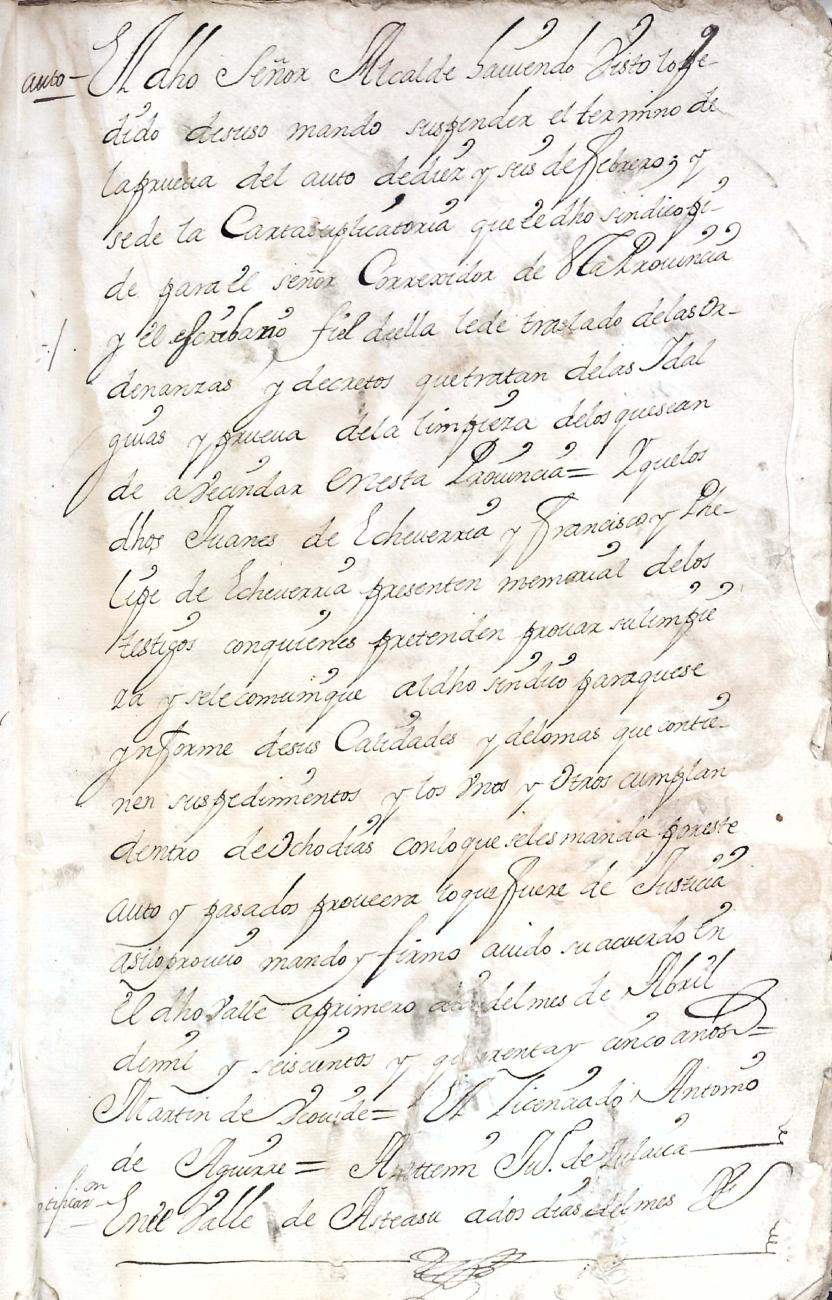 auto - El dho Señor Alcalde haviendo Visto lo pe-
dido desuso mando suspender el termino de
laprueva del auto dediez y seis de febrero, y
sede la Cartasuplicatoria que el dho sindico pi-
de para el señor Correxidor de Provincia
y el escribano fiel della lede traslado delas or-
denanzas y decretos quetratan delas Idal
guias y prueva dela limpieza delos quesean
de avecindar enesta Provincia = Y quelos
dhos Juanes de Echeverria y Francisco y Phe-
lipe de Echeverria presenten memorial delos
testigos conquienes pretenden provar sulimpie
za y sele comunique aldho sindico paraquese
ynforme desus Calidades y delomas que contie-
nen suspedimentos y los Vnos y Otros cumplan
dentro deOchodias conloque seles manda poreste
auto y pasados proveera loquefuere de Justicia
asiloproveio mando y firmo avido su acuerdo En
El dho Valle aprimero del mes de Abril
demil y seiscientos y quarenta y cinco años =
Martin de = El Licenciado Antonio
de Aguirre = Antemi Ju. de
notificaon - Enel Valle de Asteasu ados dias del mes